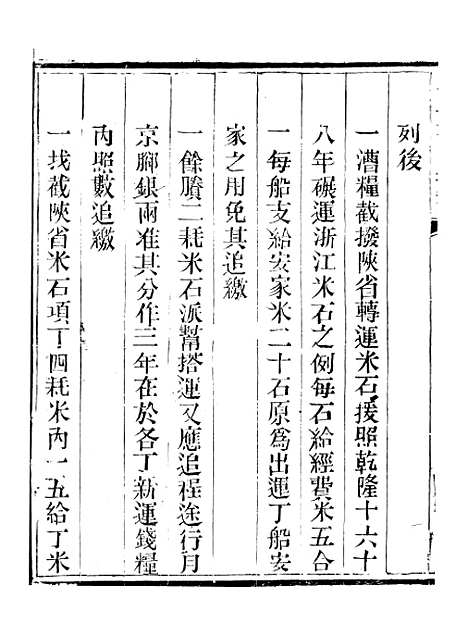 列後
一漕糧截撥陝省轉運米石援照乾隆十六十
八年碾運浙江米石之例每石給經費米五合
一每船支給安家米二十石原爲出運丁船安
家之用免其追繳
一餘賸二耗米石派幫搭運又應追程途行月
京腳銀兩准其分作三年在於各丁新運錢糧
內照數追繳
一找截陝省米石項丁四耗米內一五給丁米